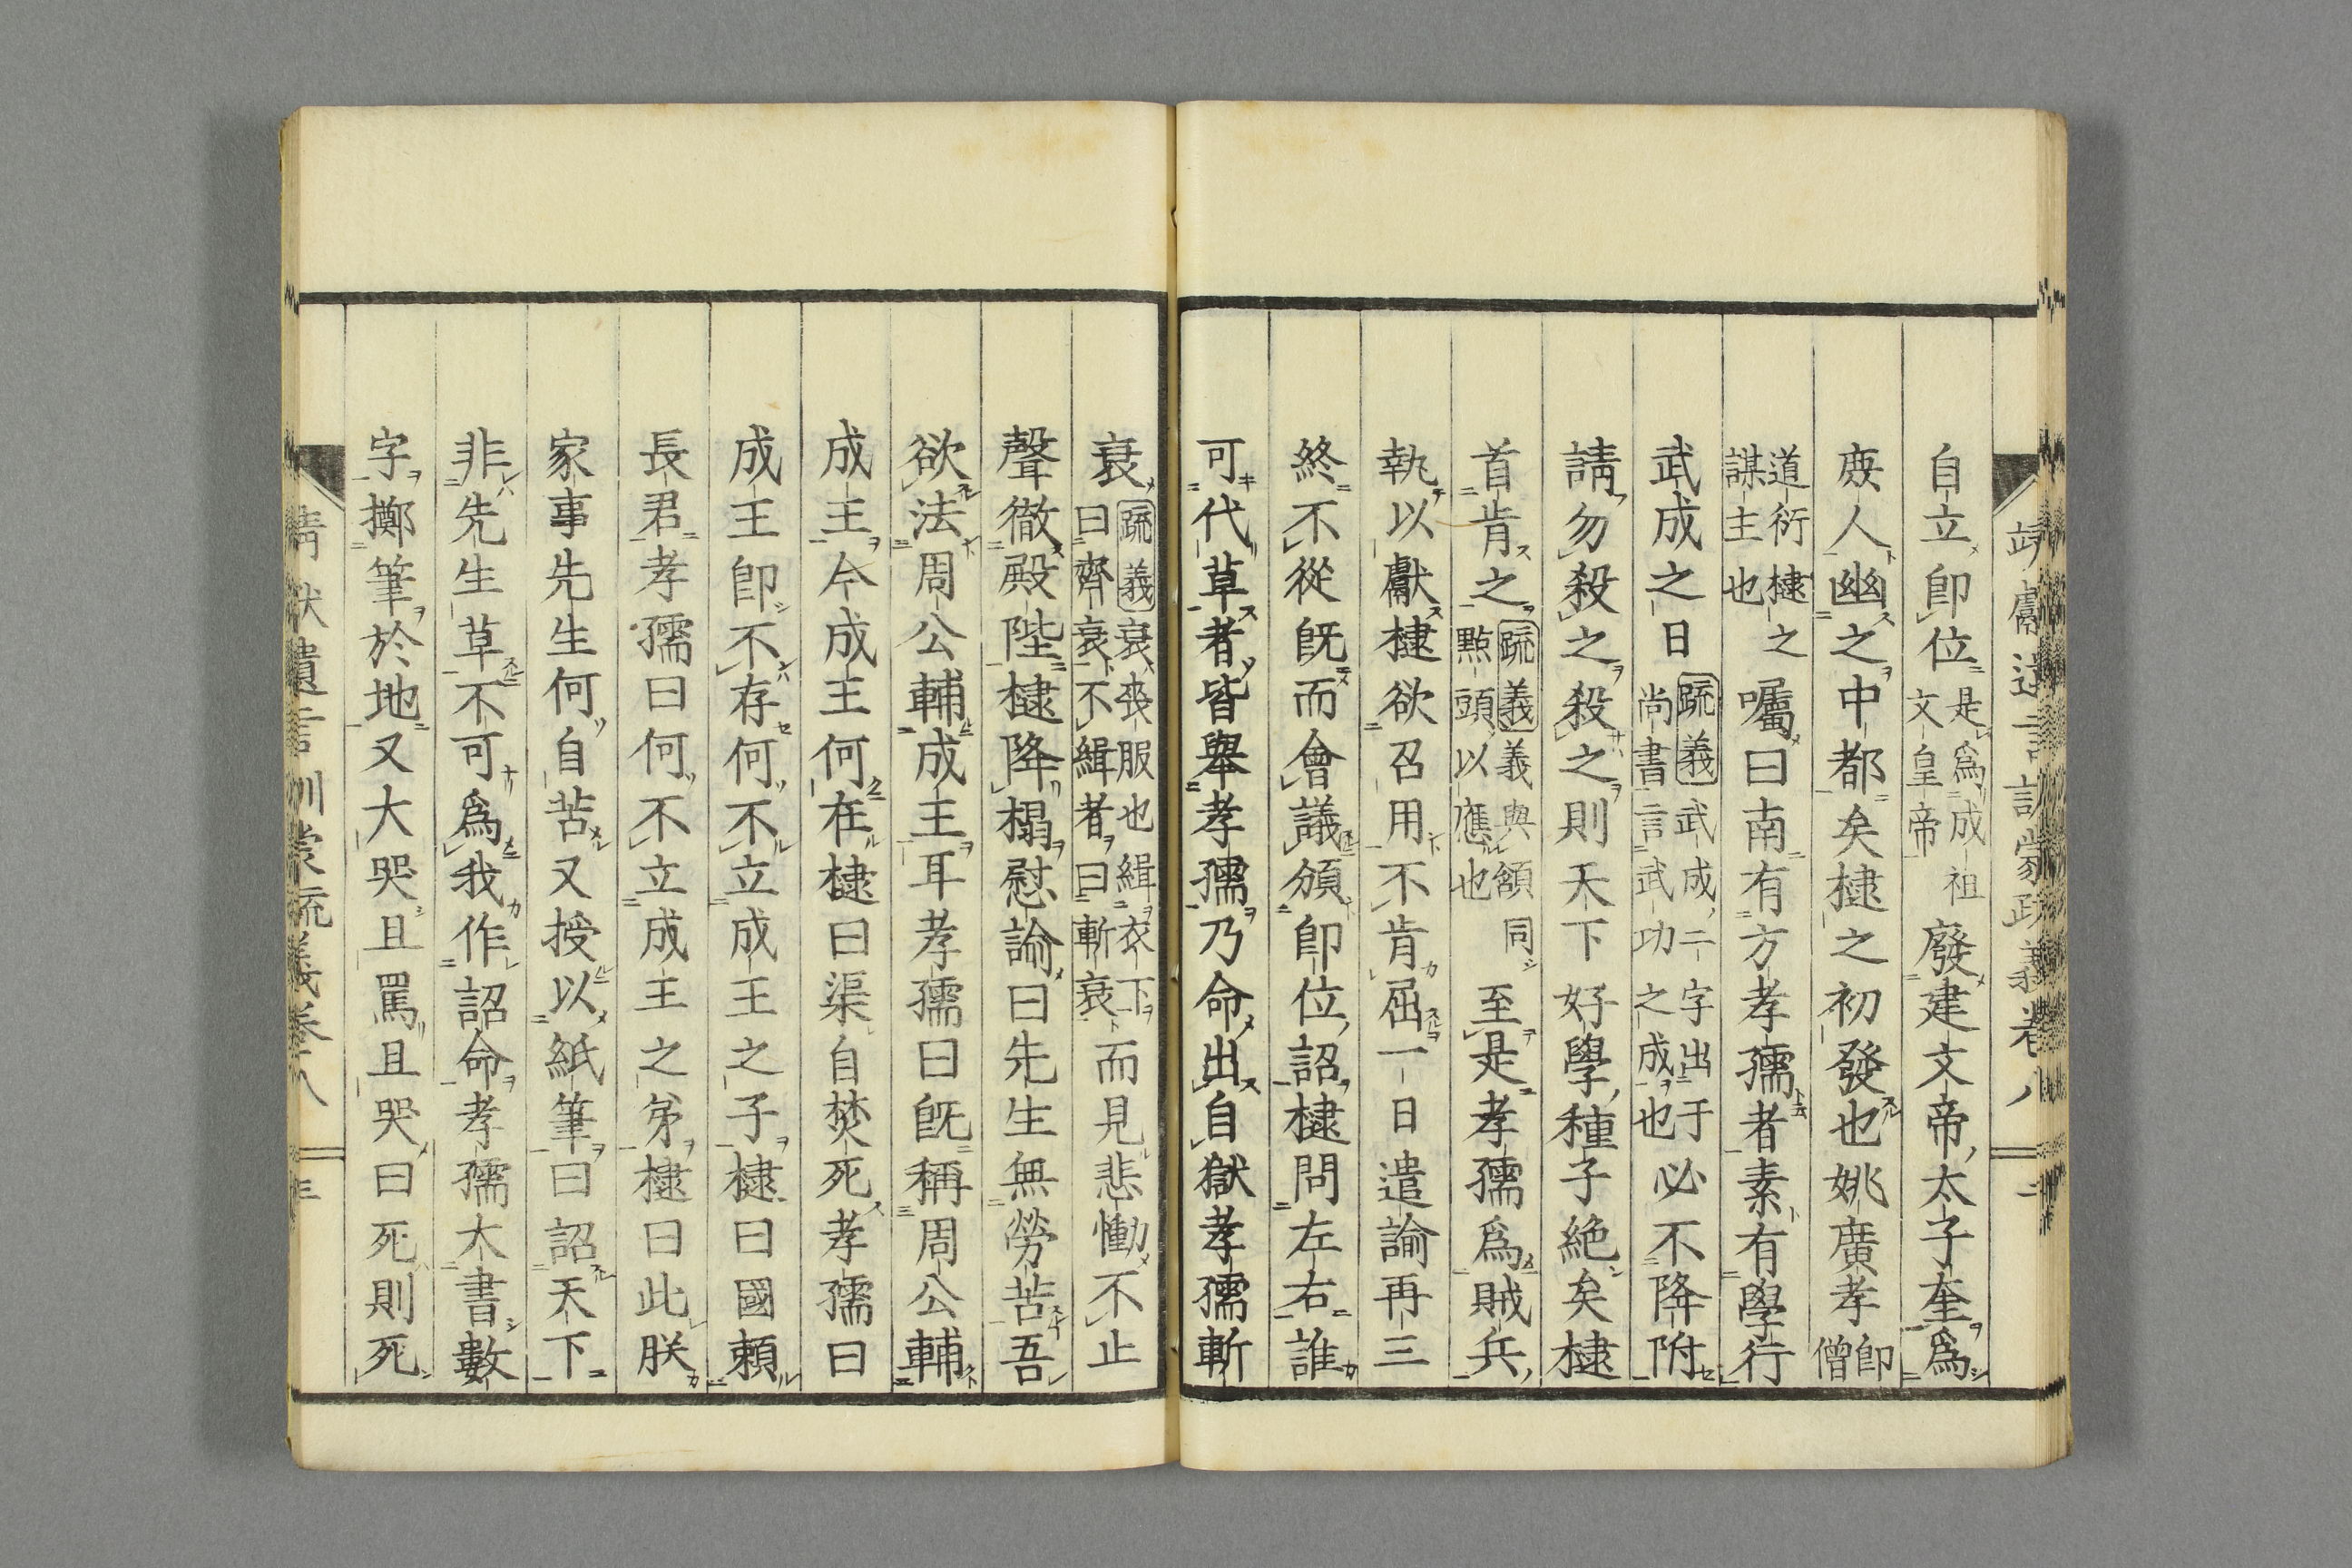 靖獻遺言訓蒙疏義卷八 二
自立卽位是爲成祖文皇帝廢建文帝太子奎爲
庻人幽之中都矣棣之初發也姚廣孝卽僧
道衍棣之謀主也囑曰南有方孝孺者素有學行
武成之日疏義武成二字出于尚書言武功之成也必不降附
請勿殺之殺之則天下好學種子絶矣棣
首肯之疏義義與頷同點頭以應也至是孝孺爲賊兵
執以獻棣欲召用不肯屈一日遣諭再三
終不從旣而會議頒卽位詔棣問左右誰
可代草者皆舉孝孺乃命出自獄孝孺斬
衰疏義衰喪服也緝衣下曰齊衰不緝者曰斬衰而見悲慟不止
聲徹殿陛棣降榻慰諭曰先生無勞苦吾
欲法周公輔成王耳孝孺曰旣稱周公輔
成王今成王何在棣曰渠自焚死孝孺曰
成王卽不存何不立成王之子棣曰國賴
長君孝孺曰何不立成王之弟棣曰此朕
家事先生何自苦又授以紙筆曰詔天下
非先生草不可爲我作詔命孝孺大書數
字擲筆於地又大哭且罵且哭曰死則死
靖獻遺言訓蒙疏義卷八 三